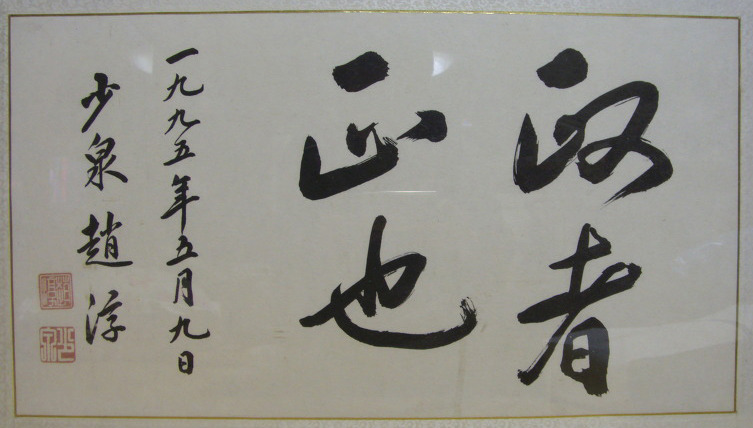 政者
正也
一九九五年五月九日
少泉趙淳